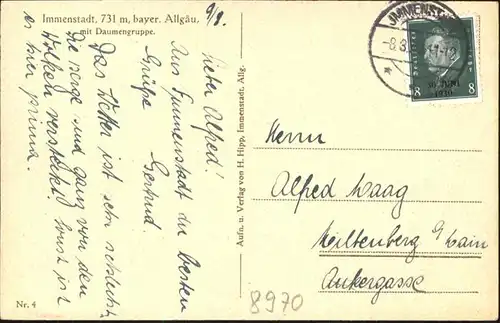 Immenstadt, 731 m, bayer. Allgäu,
mit Daumengruppe.
9/8.
Lieber Alfred!
Aus Immenstadt die besten
Grüße Gertrud.
Das Wetter ist sehr schlecht,
die Berge sind ganz von den
Wolken versteckt. Sonst ist
es hier prima.
Nr. 4
Aufn. u. Verlag von H. Hipp, Immenstadt, Allg.
IMMENSTADT
30. JUNI
1930
8 8
Herrn
Alfred Waag
Miltenberg a/Main
Ankergasse
8970